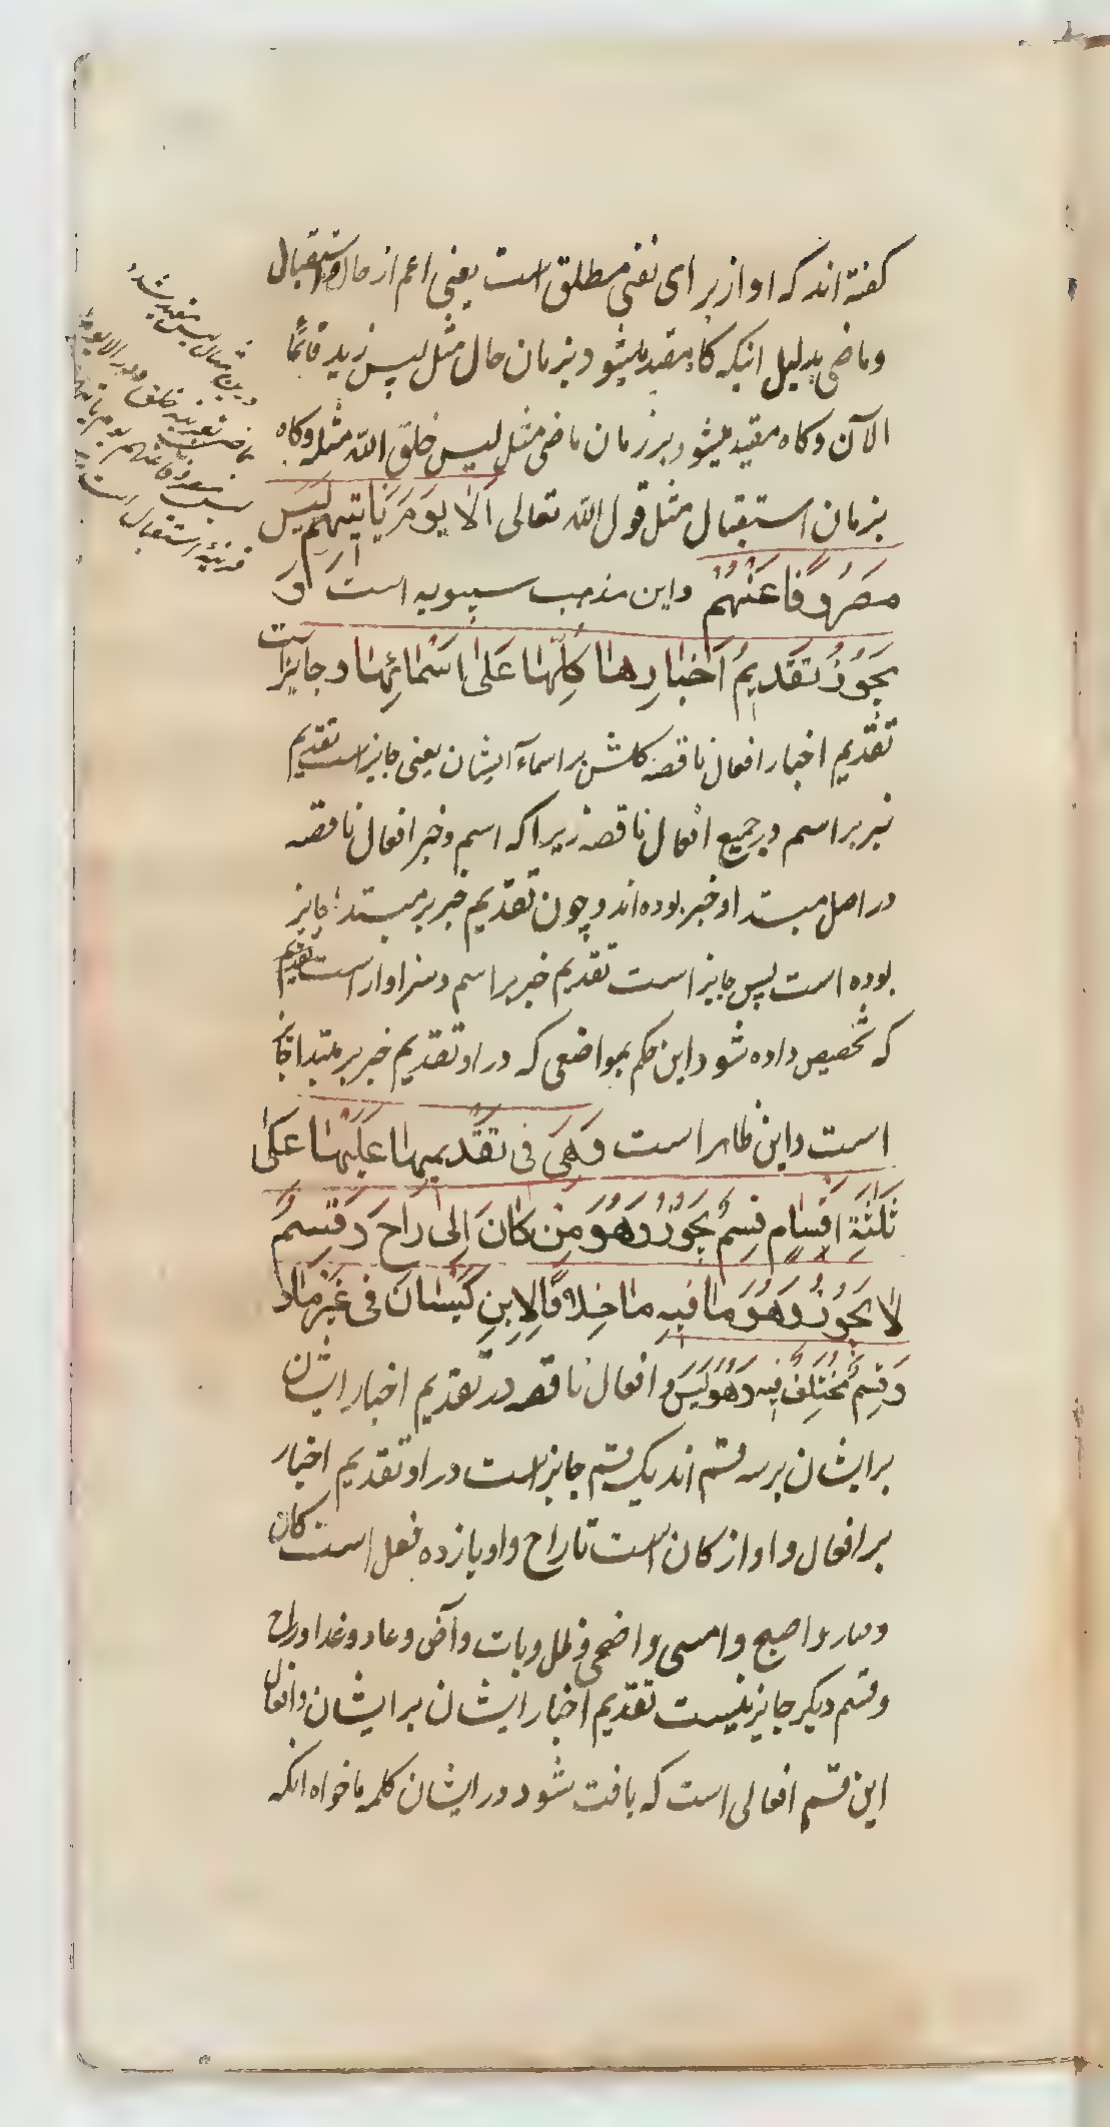 کفته اند که او از برای نفی مطلق است یعنی اعم از حال و استقبال
و ماضی بدلیل انیکه کاه مقید میشود بزمان حال مثل لیس زید قائمًا
الآن و کاه مقید میشود بر زمان ماضی مثل لیس خلق الله مثله و کاه
بزمان استقبال مثل قول الله تعالی اَلا یَومَ یَاتیهِم لَیسَ
مَصرُوفًا عَنهُم و این مذهب سیبویه است وَ
یَجُوزُ تَقدیمُ اَخبارِها کُلِّها عَلی اَسمائِها و جایز است
تقدیم اخبار افعال ناقصه کلش بر اسماء ایشان یعنی جایز است تقدیم
خبر بر اسم در جمیع افعال ناقصه زیرا که اسم و خبر افعال ناقصه
در اصل مبتدا و خبر بوده اند و چون تقدیم خبر بر مبتدا جایز
بوده است پس جایز است تقدیم خبر بر اسم و سزاوار است
که تخصیص داده شود این حکم بمواضعی که در او تقدیم خبر بر مبتدا جایز
است و این ظاهر است وَ هِیَ فی تَقدیمِها عَلَیها عَلی
ثَلثَةِ اَقسامٍ قِسمٌ یَجُوزُ وَ هُوَ مِن کانَ اِلی راحَ وَ قِسمٌ
لا یَجُوزُ وَ هُوَ ما فیهِ ما خِلافًا لِابنِ کَیسانَ فی غَیرِ مادامَ
وَ قِسمٌ مُختَلِفٌ فیه وَ هُوَ لَیسَ و افعال ناقصه در تقدیم اخبار ایشان
بر ایشان بر سه قسم اند یک قسم جایز است در او تقدیم اخبار
بر افعال و او از کان است تا راح و او یازده فعل است کان
و صار و اصبح و امسی و اضحی و ظل و بات و آض و عاد و غدا و راح
و قسم دیکر جایز نیست تقدیم اخبار ایشان بر ایشان و افعال
این قسم افعالی است که یافت شود در ایشان کلمه ما خواه انکه